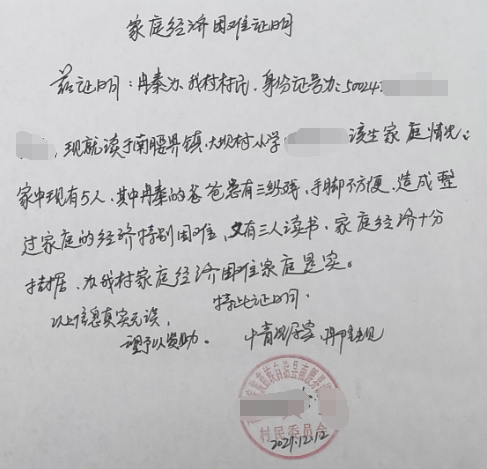 家庭经济困难证明
兹证明：冉秦为我村村民，身份证号为：50024
，现就读于南腰界镇大坝村小学 该生家庭情况：
家中现有5人，其中冉秦的爸爸患有三级残，手脚不方便，造成整
过家庭的经济特别困难，又有三人读书，家庭经济十分
拮据，为我村家庭经济困难家庭是实。
特此证明．
以上信息真实无误，
请予以资助。
村民委员会
2021.12.12